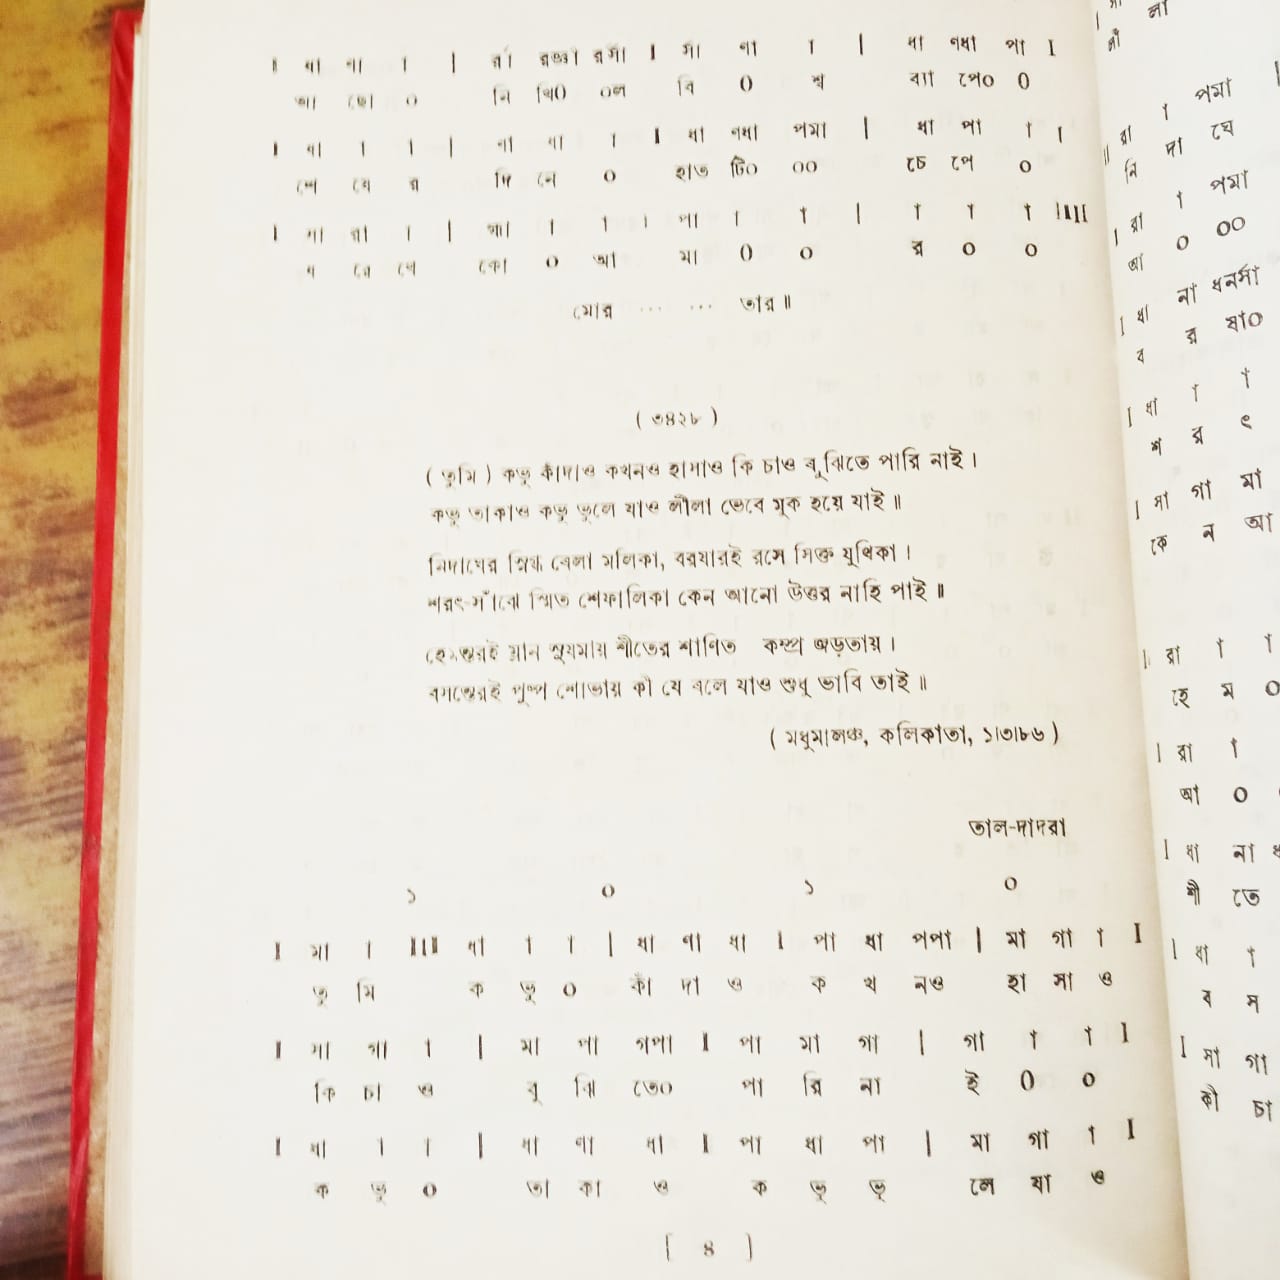 ॥ ধা না া | র্রা র্রজ্ঞা র্রর্সা ॥ র্সা ণা া | ধা ণধা পা I
আ ছো ০ নি খি০ ০ল বি ০ শ্ব ব্যা পে০ ০
া া | না া ॥ ধা ণধা পমা | ধা পা া I
শে ষে র দি নে ০ হাত টি০ ০০ চে পে ০
া | া া পা া া | া া া IIII
কো ০ আ মা ০ ০ র ০ ০
মোর ... ... তার॥
( ৩৪২৮ )
( তুমি ) কভু কাঁদাও কখনও হাসাও কি চাও বুঝিতে পারি নাই ।
কভু তাকাও কভু ভুলে যাও লীলা ভেবে মূক হয়ে যাই ॥
নিদাঘের স্নিগ্ধ বেলা মলিকা, বরষারই রসে সিক্ত যূথিকা ।
শরৎ-সাঁঝে স্মিত শেফালিকা কেন আনো উত্তর নাহি পাই ॥
হেমন্তেরই ম্লান সুষমায় শীতের শাণিত কম্প্র জড়তায় ।
বসন্তেরই পুষ্প শোভায় কী যে বলে যাও শুধু ভাবি তাই ॥
( মধুমালঞ্চ, কলিকাতা, ১।৩।৮৬ )
তাল-দাদরা
১ ০ ১ ০
॥ মা া IIII ধা া া | ধা না ধা I পা ধা পপা | মা গা া I
তু মি ক ভু ০ কাঁ দা ও ক খ নও হা সা ও
॥ মা গা া | মা পা গপা ॥ পা মা গা | গা া া I
কি চা ও বু ঝি তে০ পা রি না ই ০ ০
॥ ধা া া | ধা না ধা ॥ পা ধা পা | মা গা া I
ক ভু ০ তা কা ও ক ভু ভু লে যা ও
[ ৪ ]
লা
পমা
॥ রা া
নি দা ঘে
। রা া পমা
আ ০ ০০
। ধা না ধনর্সা
ব র ষা০
। ধা া া
শ র ৎ
। সা গা মা
কে ন আ
। রা া া
হে ম ০
। রা া
আ ০
। ধা না
শী তে
। ধা া
ব স
। সা গা
কী চা